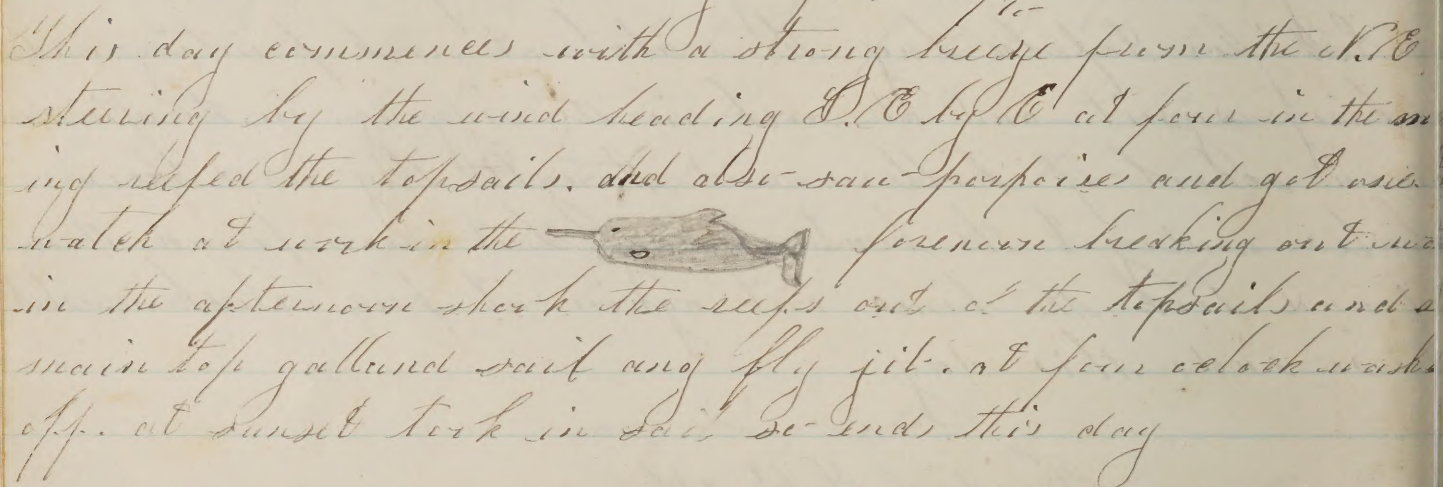 This day commences with a strong breeze from the N.E
stearing by the wind heading S.E by E at four in the
ing reefed the topsails. and also saw porpoises and got one
watch at work in the forenoon breaking out
in the afternoon shook the reefs out of the topsails and
main top galland sail ang fly jib. at four oclock
off. at sunset took in sail so ends this day